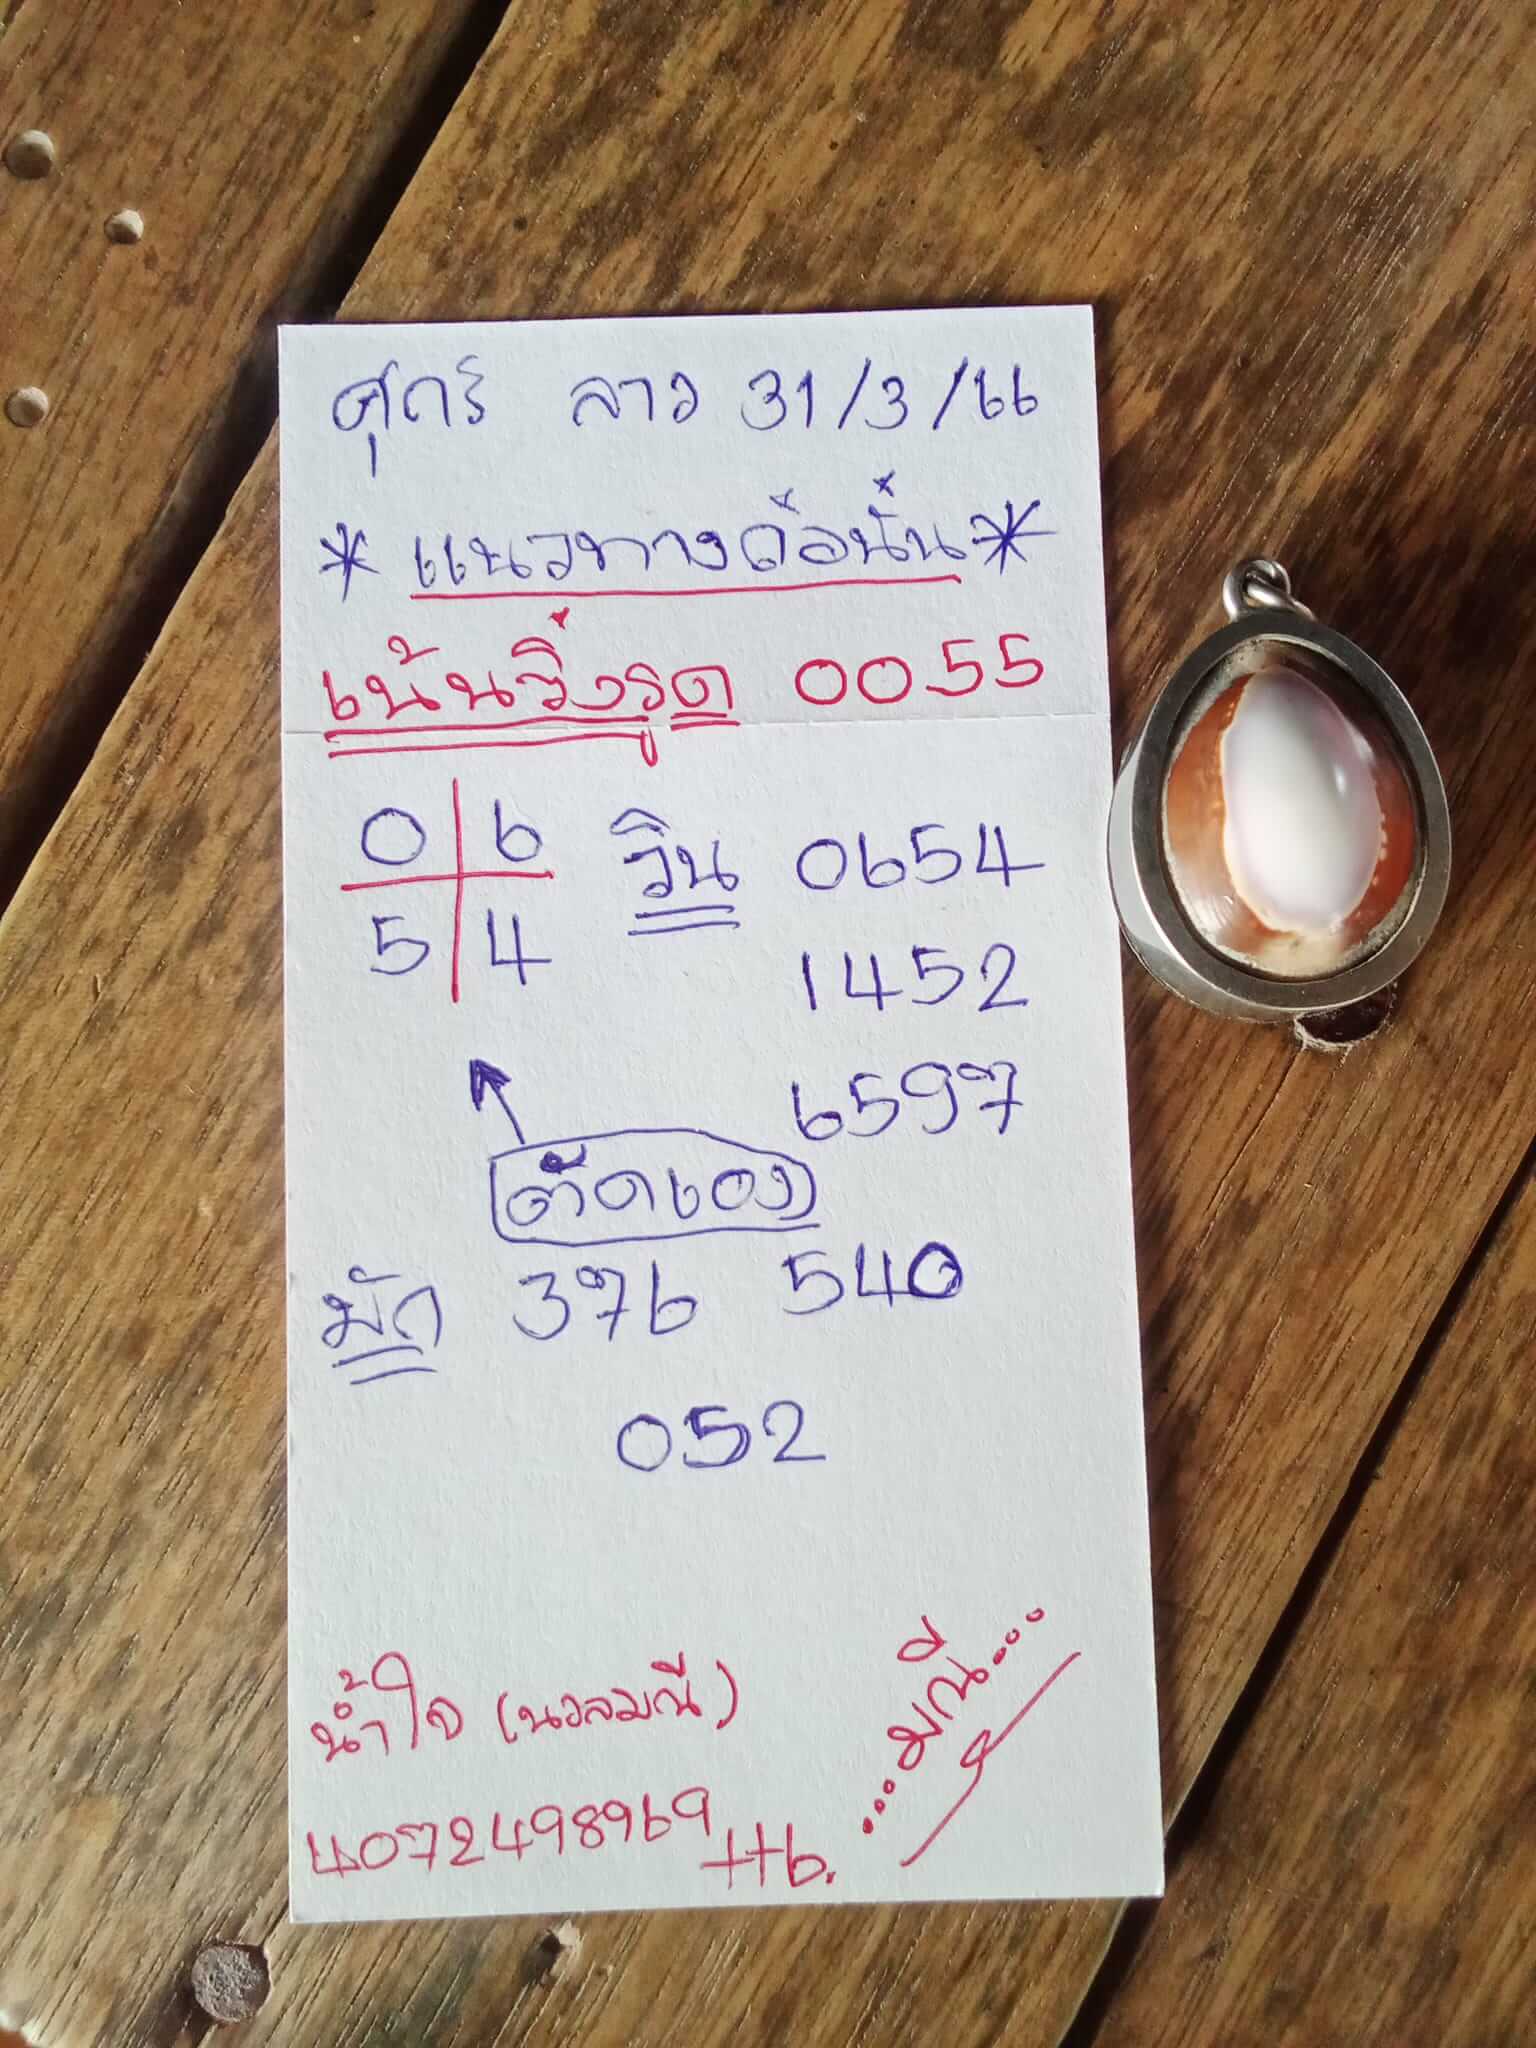 ศุกร์ ลาว 31/3/66
* แนวทางด้อนั่น *
เน้นวิ่งรูด 0055
0 6 วิน 0654
5 4 1452
6597
ตัดเอง
มัก 376 540
052
น้ำใจ (นวลมณี)
...มณี...
4072498969 ttb.